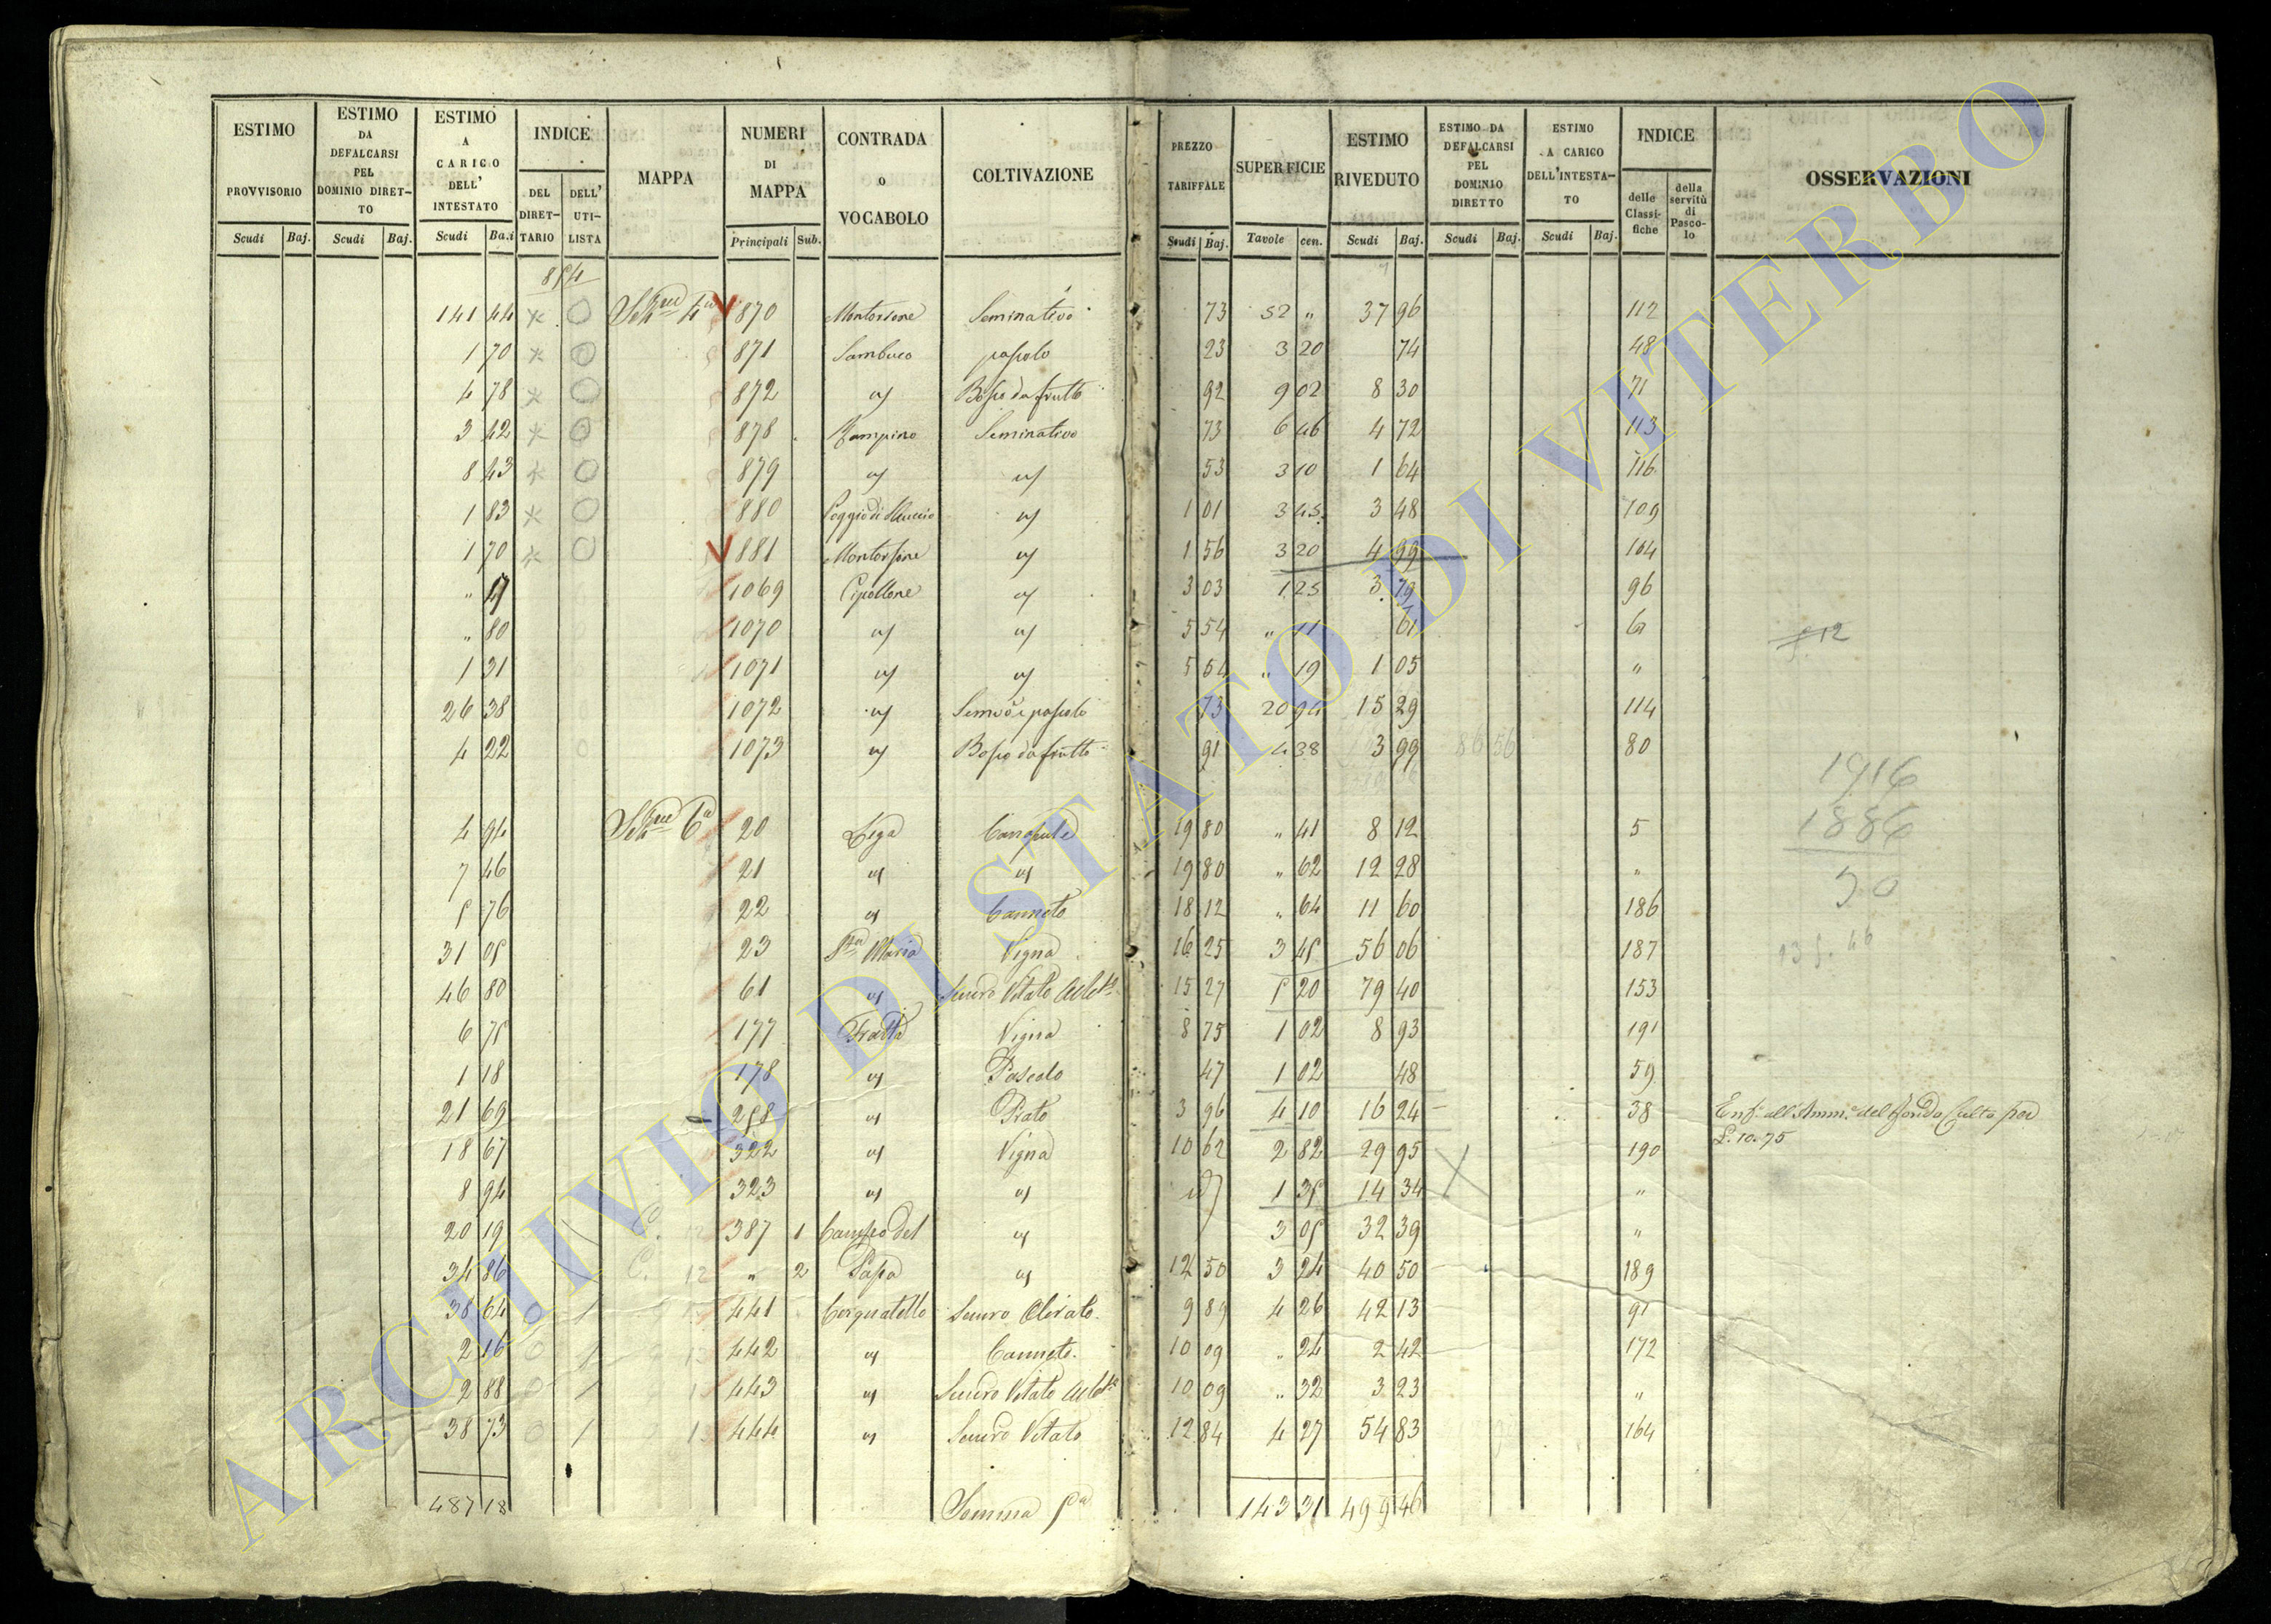 ESTIMO PROVVISORIO Scudi Baj. ESTIMO DA DEFALCARSI PEL DOMINIO DIRET-TO Scudi Baj. ESTIMO A CARICO DELL' INTESTATO Scudi Ba.i INDICE DEL DIRET-TARIO DELL' UTI-LISTA MAPPA NUMERI DI MAPPA Principali Sub. CONTRADA O VOCABOLO COLTIVAZIONE PREZZO TARIFFALE Scudi Baj. SUPERFICIE Tavole cen. ESTIMO RIVEDUTO Scudi Baj. ESTIMO DA DEFALCARSI PEL DOMINIO DIRETTO Scudi Baj. ESTIMO A CARICO DELL'INTESTA-TO Scudi Baj. INDICE delle Classi-fiche della servitù di Pasco-lo OSSERVAZIONI
854
141 44 870 Seminativo 73 52 " 37 96 112
1 70 871 Sambuco pascolo 23 3 20 74 48
4 78 872 Bosco da frutto 92 9 02 8 30 71
3 42 878 Rampino Seminativo 73 6 46 4 72 113
8 43 879 53 3 10 1 64 116
1 83 880 1 01 3 45 3 48 109
1 70 881 1 56 3 20 4 99 104
" 1069 Cipollone 3 03 1 25 3 79 96
" 80 1070 5 54 " 11 61
1 31 1071 5 54 " 19 1 05 "
26 38 1072 73 20 94 15 29 114
4 22 1073 Bosco da frutto 91 4 38 3 99 86 56 80
1916
4 94 6a 20 Lega Canapule 19 80 " 41 8 12 5 1886
7 46 21 19 80 " 62 12 28 " 30
5 76 22 Canneto 18 12 " 64 11 60 186
31 05 23 Sta Maria Vigna 16 25 3 45 56 06 187
46 80 61 Semvo Vitato 15 27 5 20 79 40 153
6 75 177 Fratta Vigna 8 75 1 02 8 93 191
1 18 178 Pascolo 47 1 02 48 59
21 69 258 Prato 3 96 4 10 16 24 38 Enf. all'Amm. del Fondo Culto per
L. 10.75
18 67 322 Vigna 10 62 2 82 29 95 190
8 94 323 1 35 14 34 "
20 19 387 1 Campo del 3 05 32 39 "
34 86 " 2 Papa 12 50 3 24 40 50 189
38 64 441 Cerquatello Semvo Olivato 9 89 4 26 42 13 91
2 16 442 Canneto 10 09 " 24 2 42 172
2 88 443 Semvo Vitato 10 09 " 32 3 23 "
38 73 444 Semvo Vitato 12 84 4 27 54 83 164
487 18 Somma 5a 143 31 499 46
ARCHIVIO DI STATO DI VITERBO